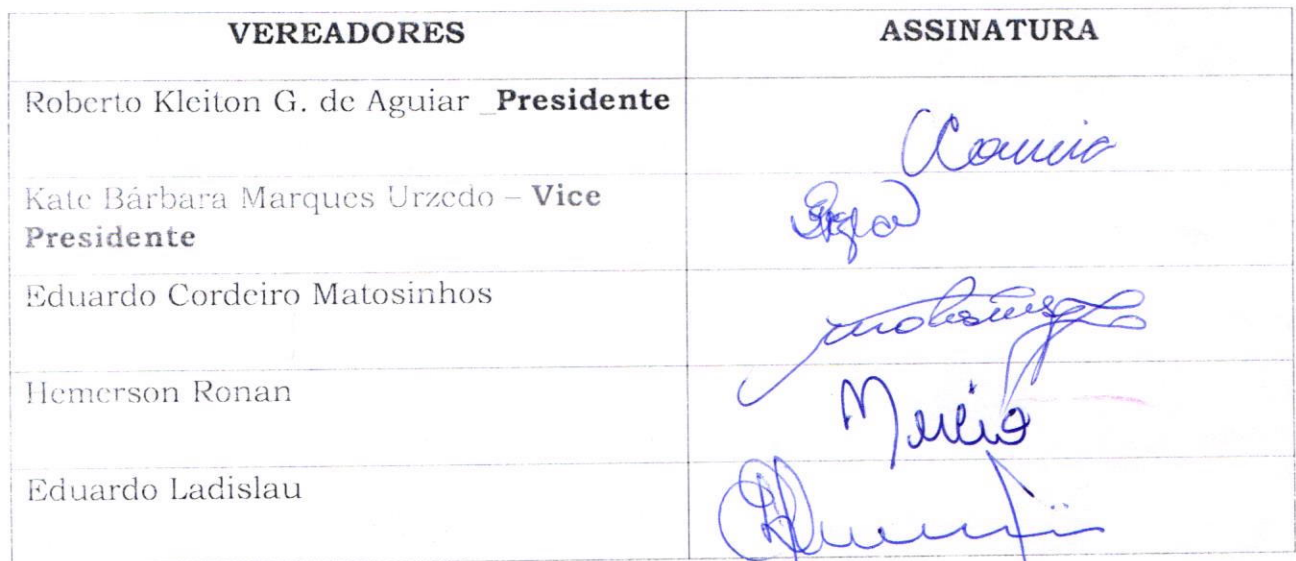 VEREADORES ASSINATURA
Roberto Kleiton G. de Aguiar _Presidente
Kate Bárbara Marques Urzedo – Vice
Presidente
Eduardo Cordeiro Matosinhos
Hemerson Ronan
Eduardo Ladislau